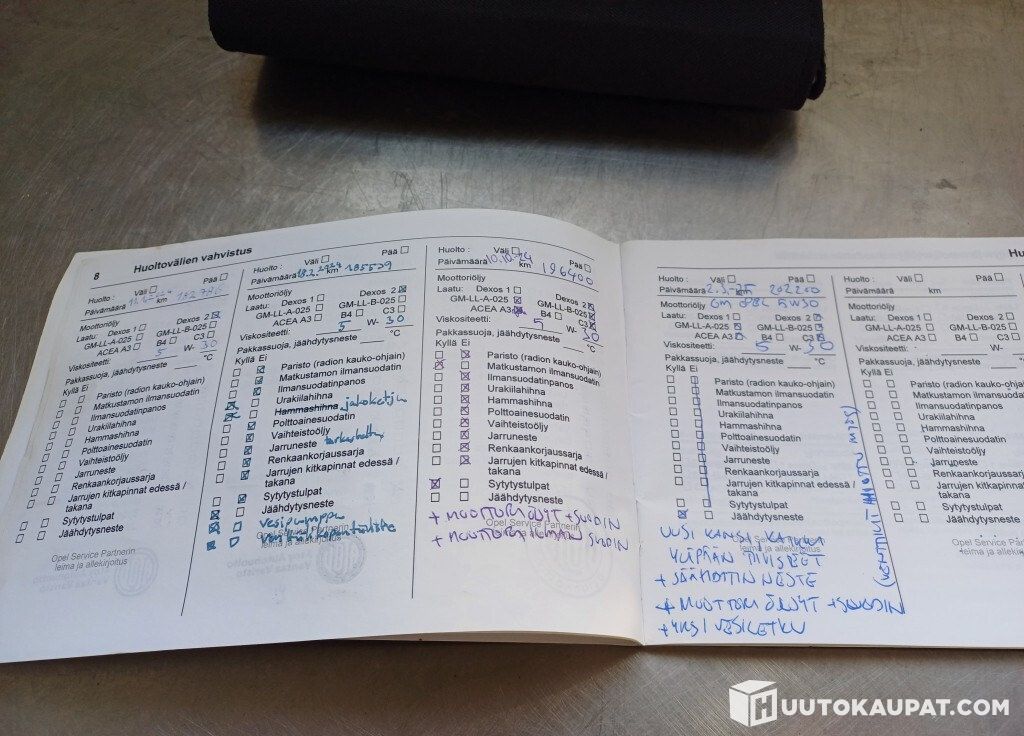 8 Huoltovälien vahvistus
Huolto : Väli Pää
Päivämäärä km
Moottoriöljy
Laatu: Dexos 1 Dexos 2
GM-LL-A-025 GM-LL-B-025
ACEA A3 B4 C3
Viskositeetti: 5 W- 30
Pakkassuoja, jäähdytysneste °C
Kyllä Ei
Paristo (radion kauko-ohjain)
Matkustamon ilmansuodatin
Ilmansuodatinpanos
Urakiilahihna
Hammashihna
Polttoainesuodatin
Vaihteistoöljy
Jarruneste
Renkaankorjaussarja
Jarrujen kitkapinnat edessä /
takana
Sytytystulpat
Jäähdytysneste
Opel Service Partnerin
leima ja allekirjoitus
Huolto : Väli Pää
Päivämäärä km 185539
Moottoriöljy
Laatu: Dexos 1 Dexos 2
GM-LL-A-025 GM-LL-B-025
ACEA A3 B4 C3
Viskositeetti: 5 W- 30
Pakkassuoja, jäähdytysneste °C
Kyllä Ei
Paristo (radion kauko-ohjain)
Matkustamon ilmansuodatin
Ilmansuodatinpanos
Urakiilahihna
Hammashihna jakoketju
Polttoainesuodatin
Vaihteistoöljy
Jarruneste
Renkaankorjaussarja
Jarrujen kitkapinnat edessä /
takana
Sytytystulpat
Jäähdytysneste
vesipumppu
Huolto : Väli Pää
Päivämäärä 10.10.24 km 196400
Moottoriöljy
Laatu: Dexos 1 Dexos 2
GM-LL-A-025 GM-LL-B-025
ACEA A3 B4 C3
Viskositeetti: 5 W- 30
Pakkassuoja, jäähdytysneste °C
Kyllä Ei
Paristo (radion kauko-ohjain)
Matkustamon ilmansuodatin
Ilmansuodatinpanos
Urakiilahihna
Hammashihna
Polttoainesuodatin
Vaihteistoöljy
Jarruneste
Renkaankorjaussarja
Jarrujen kitkapinnat edessä /
takana
Sytytystulpat
Jäähdytysneste
+ MOOTTORI ÖLJYT + SUODIN
+ MOOTTORI ILMAN SUODIN
Opel Service Partnerin
leima ja allekirjoitus
Hu
Huolto : Väli Pää
Päivämäärä km 202200
Moottoriöljy 5W30
Laatu: Dexos 1 Dexos 2
GM-LL-A-025 GM-LL-B-025
ACEA A3 B4 C3
Viskositeetti: 5 W- 30
Pakkassuoja, jäähdytysneste °C
Kyllä Ei
Paristo (radion kauko-ohjain)
Matkustamon ilmansuodatin
Ilmansuodatinpanos
Urakiilahihna
Hammashihna
Polttoainesuodatin
Vaihteistoöljy
Jarruneste
Renkaankorjaussarja
Jarrujen kitkapinnat edessä /
takana
Sytytystulpat
Jäähdytysneste
UUSI KANSI KAIKKI
YLÄPÄÄN TIIVISTEET
+ JÄÄHDYTIN NESTE
+ MOOTTORI ÖLJYT + SUODIN
+ YKSI VESILETKU
Huolto : Väli
Päivämäärä km
Moottoriöljy
Laatu: Dexos 1
GM-LL-A-025
ACEA A3
Viskositeetti:
Pakkassuoja, jäähdytysneste
Kyllä Ei
Paristo (radion
Matkustamon ilmansuodatin
Ilmansuodatinpanos
Urakiilahihna
Hammashihna
Polttoainesuodatin
Vaihteistoöljy
Jarruneste
Renkaankorjaussarja
Jarrujen kitkapinnat
takana
Sytytystulpat
Jäähdytysneste
Opel Service
leima ja allekirjoitus
HUUTOKAUPAT.COM